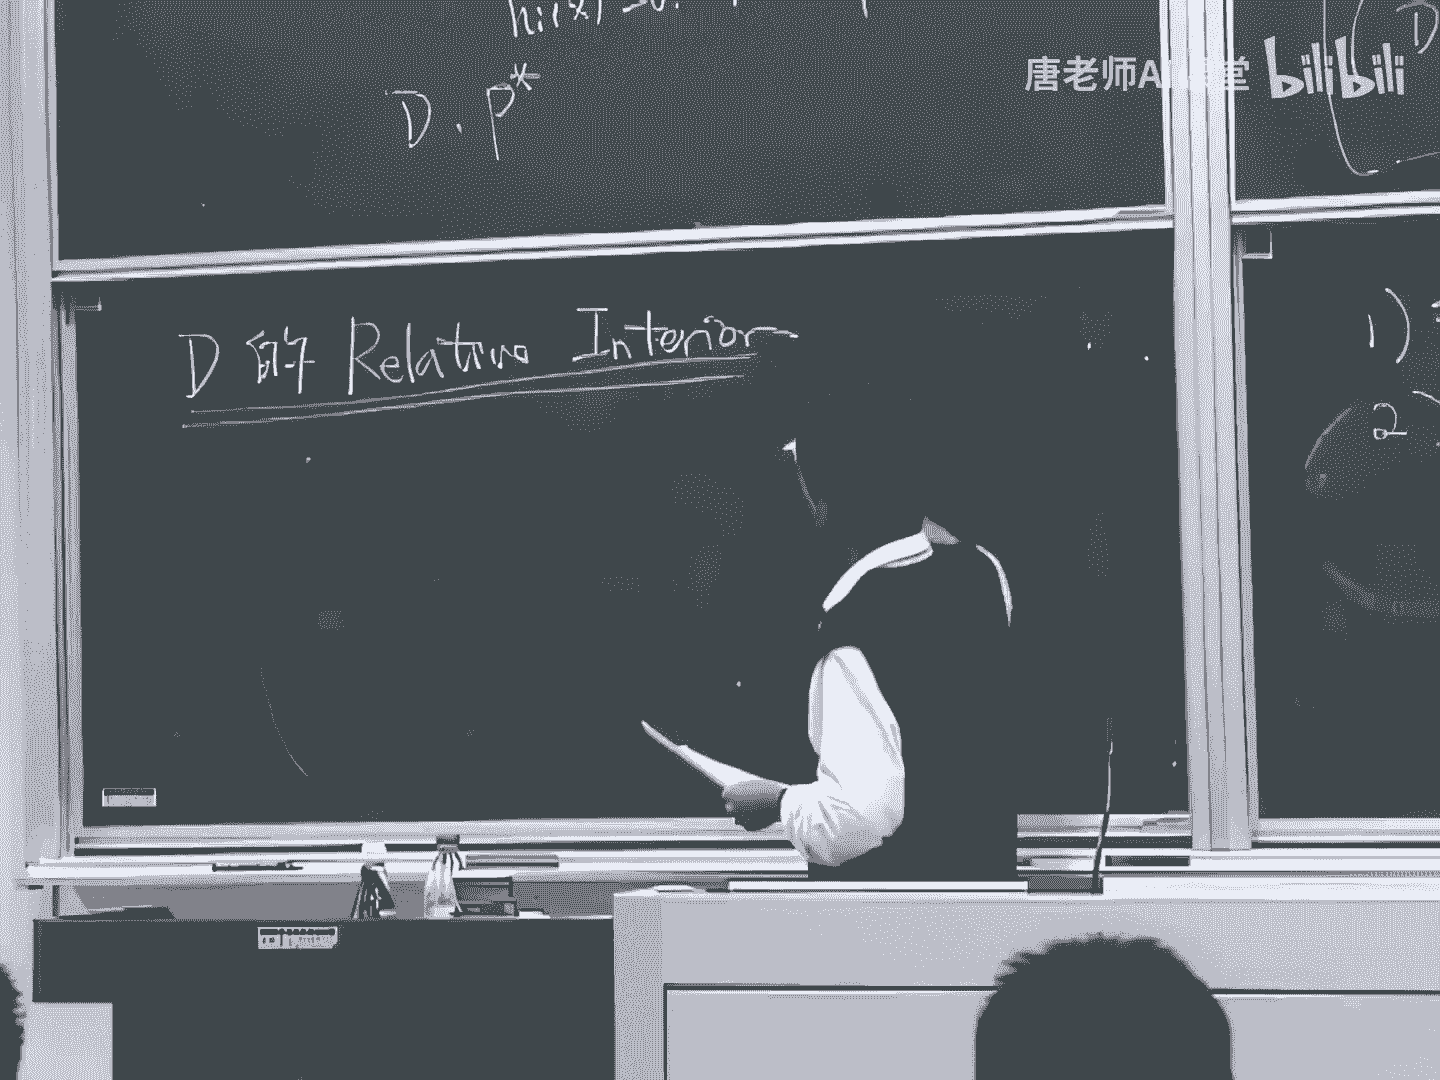 hi(x)=0.
D. P*
唐老师AI课堂 bilibili
D
D 的 Relative Interior
1)
2)